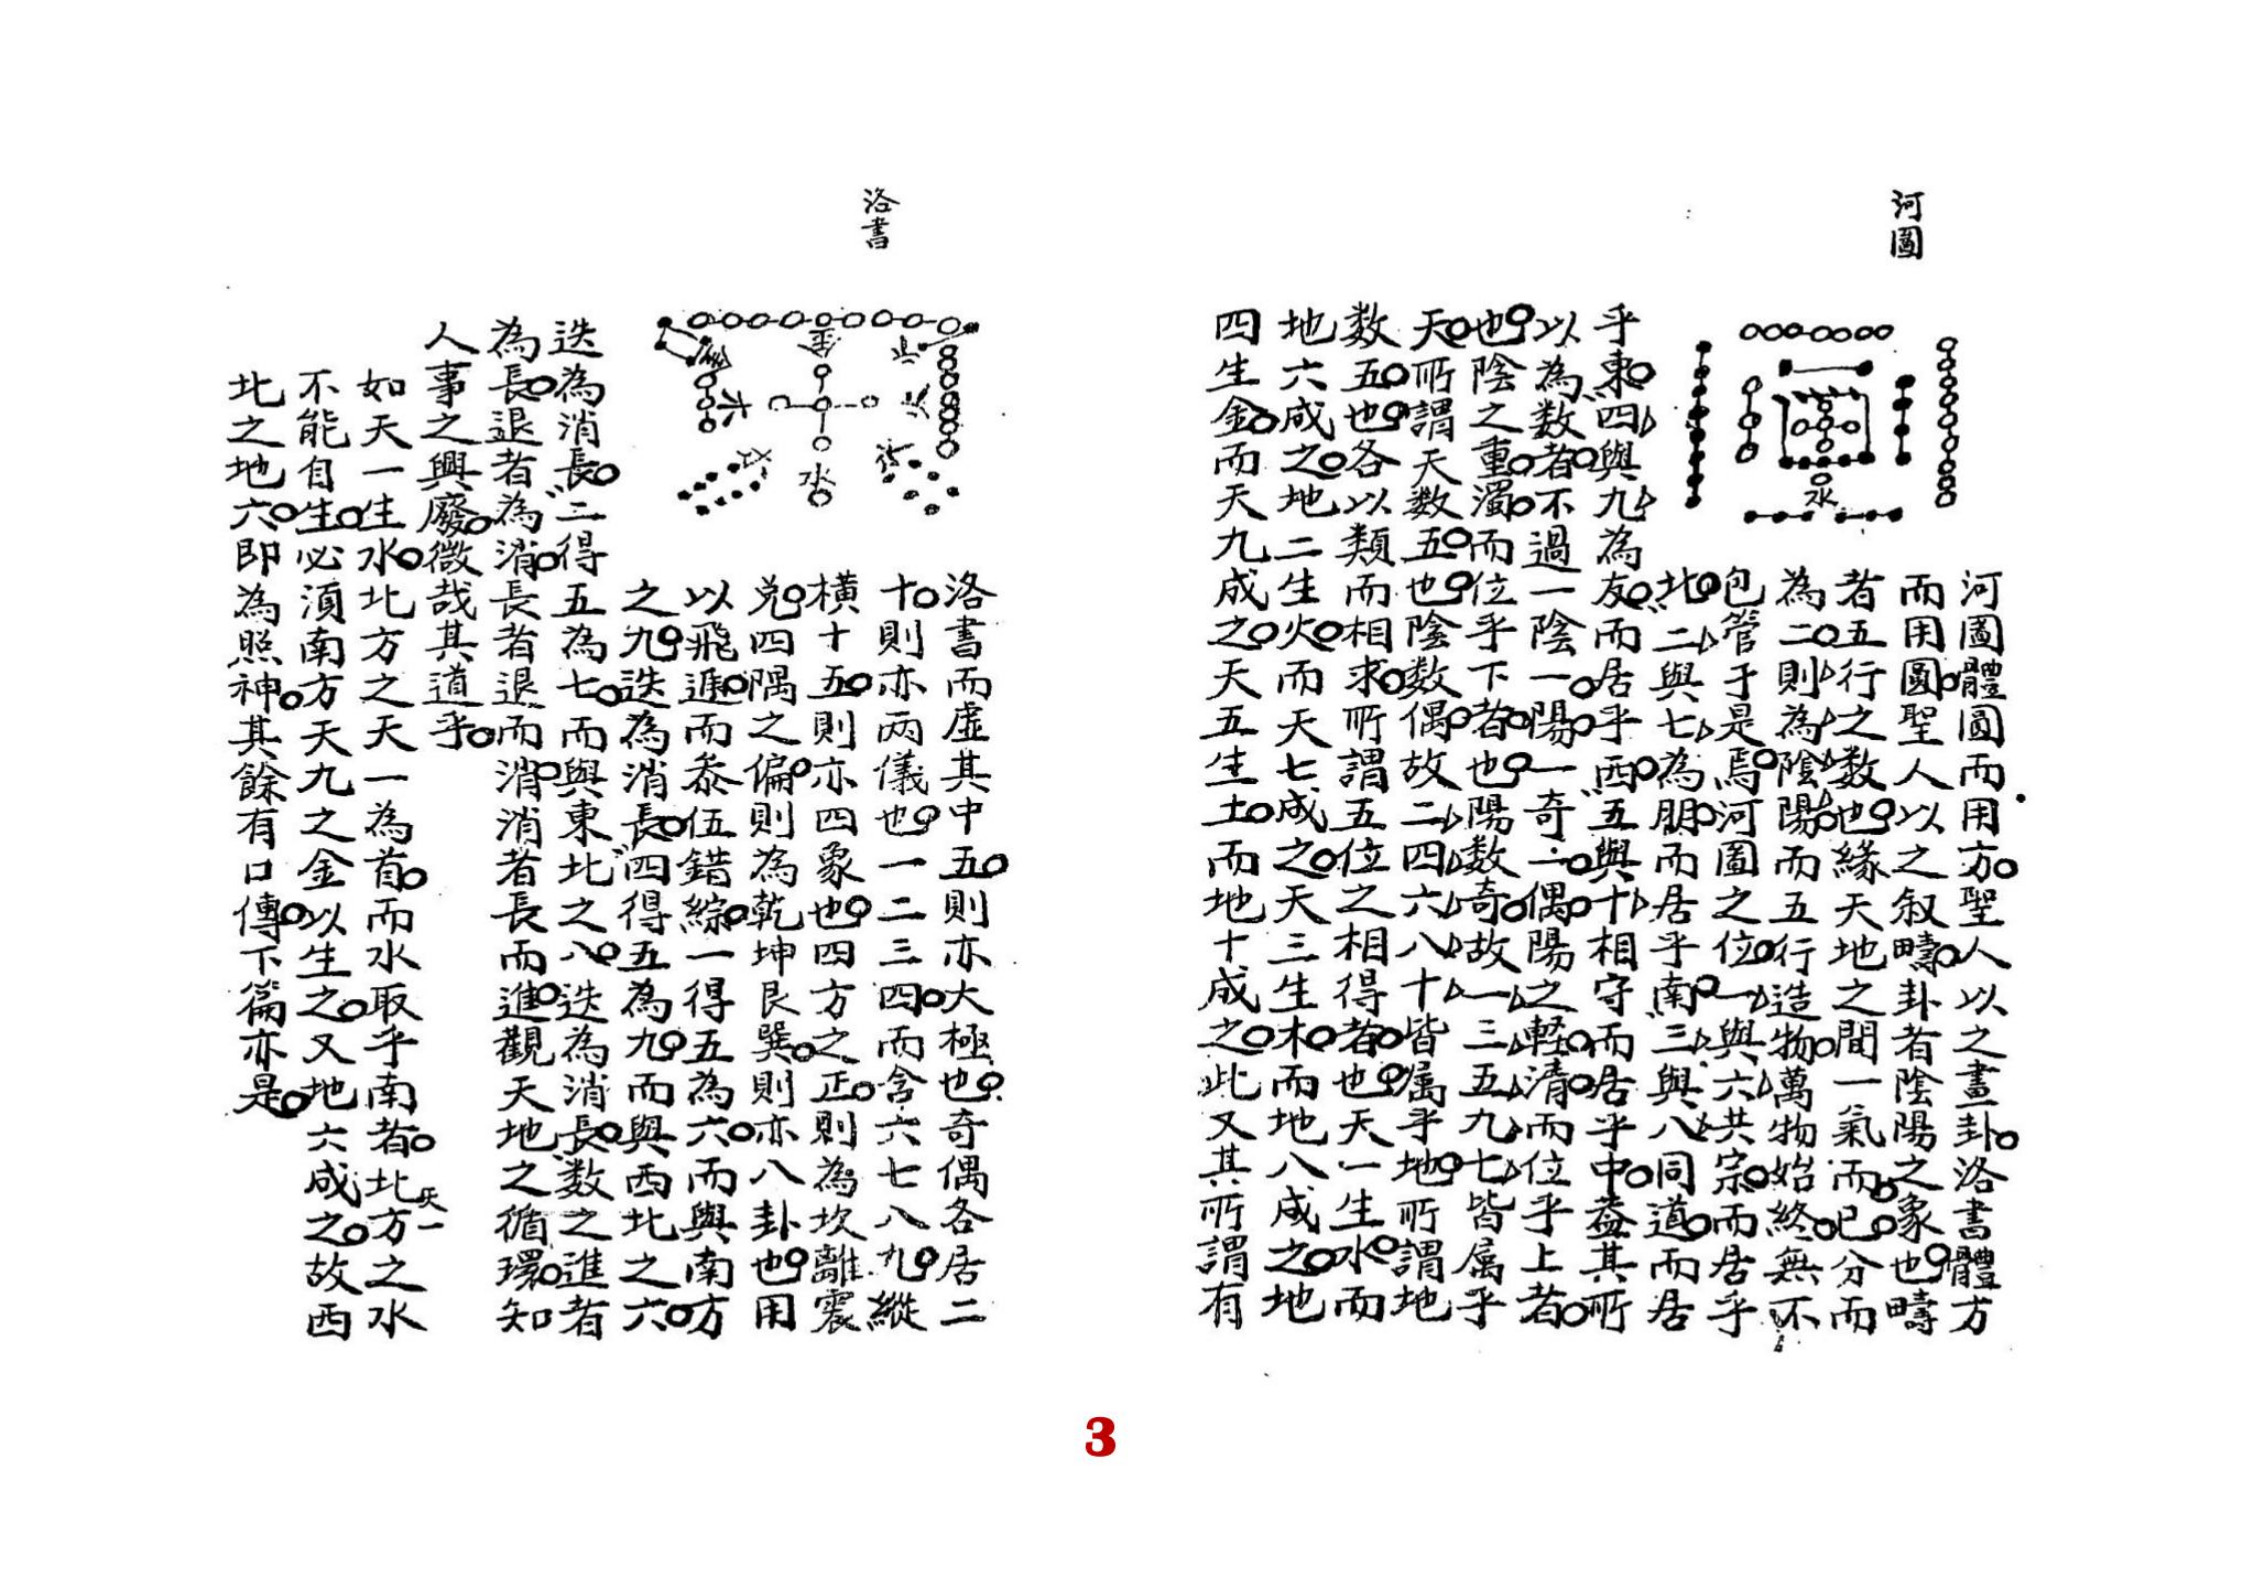 河圖
水
河圖體圓而用方聖人以之畫卦洛書體方
而用圓聖人以之叙疇卦者陰陽之象也疇
者五行之数也緣天地之間一氣而已分而
為二則為陰陽而五行造物萬物始終無不
包管于是焉河圖之位一與六共宗而居乎
北二與七為朋而居乎南三與八同道而居
乎東四與九為友而居乎西五與十相守而居乎中葢其所
以為数者不過一陰一陽一奇一偶陽之軽清而位乎上者
也陰之重濁而位乎下者也陽数奇故一三五九七皆属乎
天所謂天数五也陰数偶故二四六八十皆属乎地所謂地
数五也各以類而相求所謂五位之相得者也天一生水而
地六成之地二生火而天七成之天三生木而地八成之地
四生金而天九成之天五生土而地十成之此又其所謂有
洛書
水
洛書而虛其中五則亦大極也奇偶各居二
十則亦兩儀也一二三四而含六七八九縱
橫十五則亦四象也四方之正則為坎離震
兌四隅之偏則為乾坤艮巽則亦八卦也用
以飛遁而叅伍錯綜一得五為六而與南方
之九迭為消長四得五為九而與西北之六
迭為消長二得五為七而與東北之八迭為消長数之進者
為長退者為消長者退而消消者長而進觀天地之循環知
人事之興廢微哉其道乎
如天一生水北方之天一為首而水取乎南者北方之水
天一
不能自生必湏南方天九之金以生之又地六成之故西
北之地六即為照神其餘有口傳下篇亦是
3